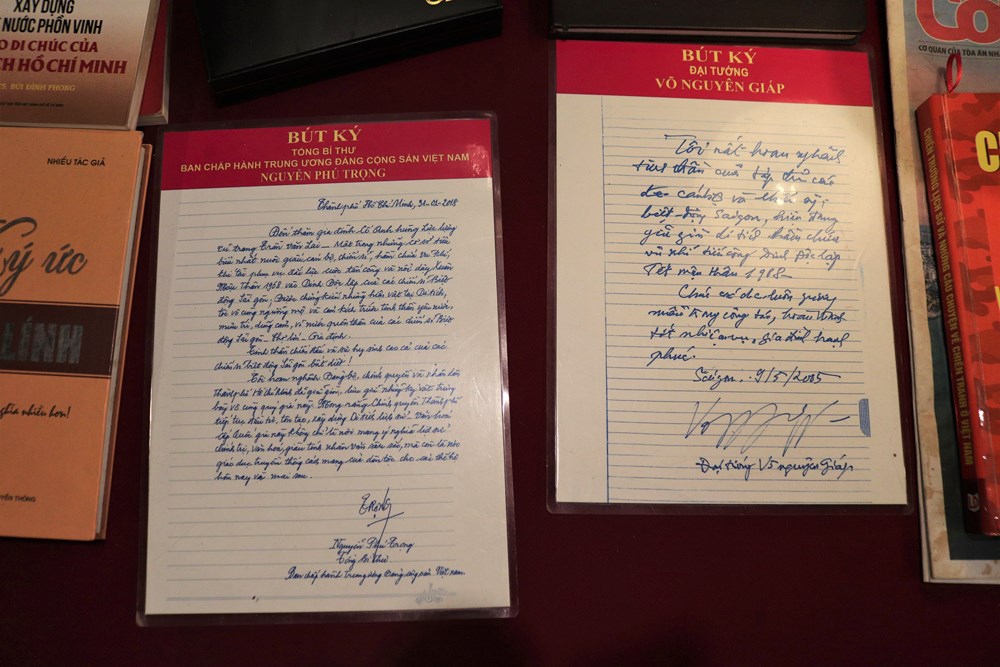 XÂY DỰNG
NƯỚC PHỒN VINH
DI CHÚC CỦA
HỒ CHÍ MINH
BÙI ĐÌNH PHONG
NHIỀU TÁC GIẢ
Ký ức
LÍNH
nghĩa nhiều hơn!
BÚT KÝ
TỔNG BÍ THƯ
BAN CHẤP HÀNH TRUNG ƯƠNG ĐẢNG CỘNG SẢN VIỆT NAM
NGUYỄN PHÚ TRỌNG
Thành phố Hồ Chí Minh, 31-01-2018
Đến thăm gia đình cố Anh hùng Lực lượng
vũ trang Trần Văn Lai – Một trong những cơ sở tiêu
biểu nhất nuôi giấu cán bộ, chiến sĩ, hầm chứa vũ khí,
khí tài phục vụ lực lượng tấn công và nổi dậy Xuân
Mậu Thân 1968 vào Dinh Độc lập của các chiến sĩ Biệt
động Sài Gòn, chứng kiến những hiện vật tại Di tích,
tôi vô cùng ngưỡng mộ và tinh thần yêu nước,
mưu trí, dũng cảm, vì nước quên thân của các chiến sĩ Biệt
động Sài Gòn – Chợ Lớn – Gia Định.
Tinh thần chiến đấu và sự hy sinh cao cả của các
chiến sĩ biệt động Sài Gòn bất diệt!
Tôi hoan nghênh Đảng bộ, chính quyền và nhân dân
Thành phố Hồ Chí Minh đã giữ gìn, lưu giữ những kỷ vật trưng
bày vô cùng quý giá này. Mong rằng Chính quyền Thành phố
tiếp tục đầu tư, tôn tạo, xây dựng Di tích lịch sử - Văn hoá
cấp Quốc gia này không chỉ là nơi mang ý nghĩa lịch sử
chính trị, văn hoá, giàu tính nhân văn sâu sắc, mà còn là nơi
giáo dục truyền thống cách mạng của dân tộc cho các thế hệ
hôm nay và mai sau.
Trọng
Nguyễn Phú Trọng
Tổng Bí thư
Ban chấp hành Trung ương Đảng cộng sản Việt Nam
BÚT KÝ
ĐẠI TƯỚNG
VÕ NGUYÊN GIÁP
Tôi rất hoan nghênh
tinh thần của tập thể các
cán bộ và chiến sĩ
biệt động Saigon,
giữ gìn di tích hầm chứa
vũ khí tiến công Dinh Độc lập
Tết mậu thân 1968-
Chúc các đ/c luôn
công tác, hoàn thành
tốt nhiệm vụ, gia đình hạnh
phúc.
Saigon. 9/5/2005
Đại tướng Võ nguyên Giáp
CƠ QUAN CỦA TÒA ÁN
CHIẾN THẮNG LỊCH SỬ VÀ NHỮNG CÂU CHUYỆN VỀ CHIẾN TRANH Ở VIỆT NAM